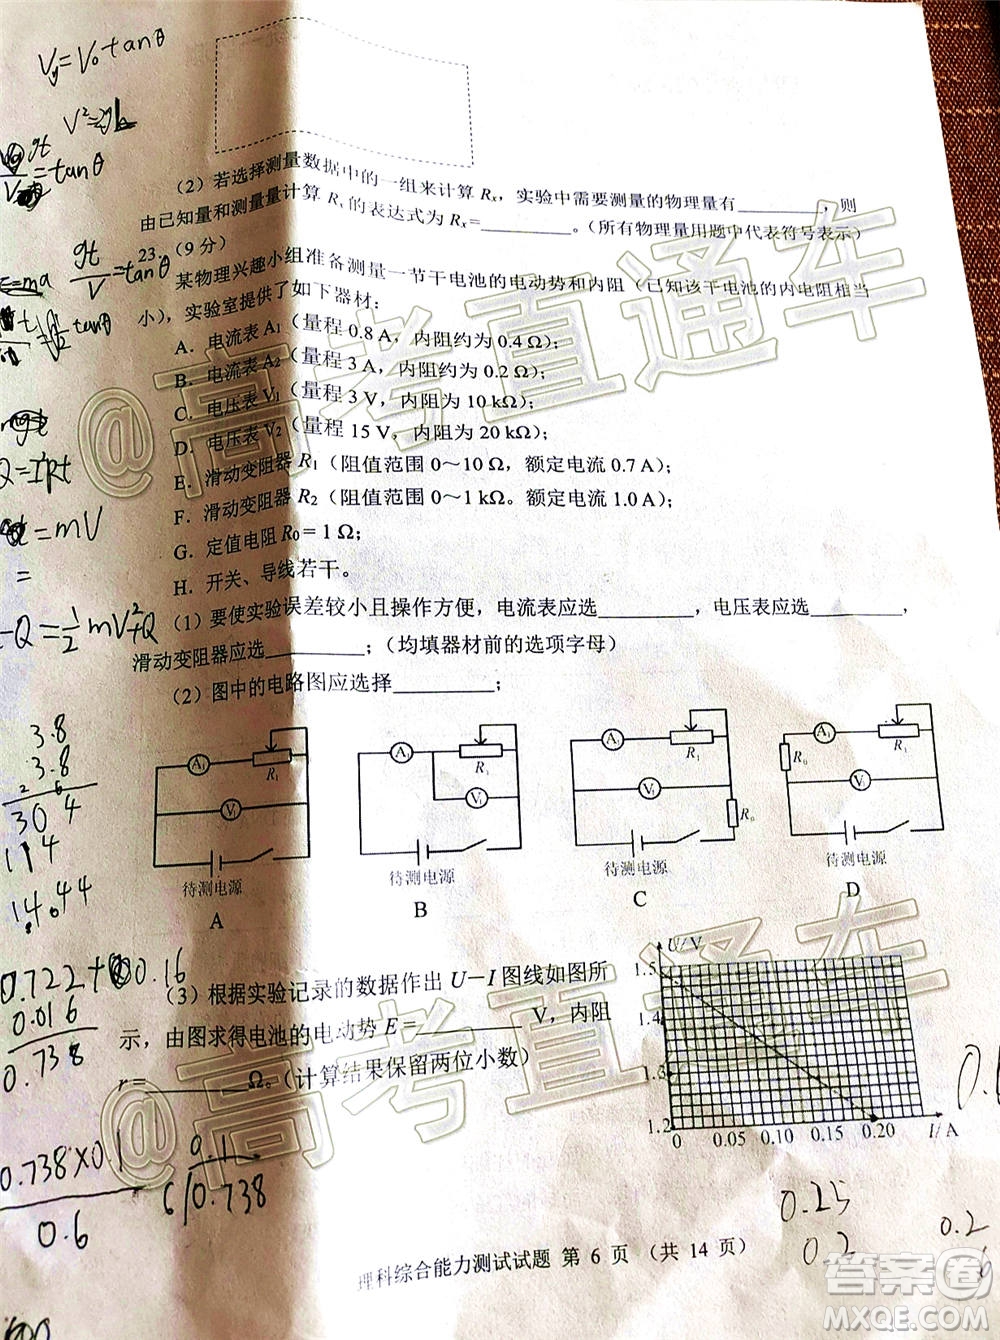 V_y=V_0tanθ
V²=2gh
gt/V=tanθ
（2）若选择测量数据中的一组来计算 Rₓ，实验中需要测量的物理量有________，则
由已知量和测量量计算 Rₓ的表达式为 Rₓ=________。（所有物理量用题中代表符号表示）
23（9 分）
某物理兴趣小组准备测量一节干电池的电动势和内阻（已知该干电池的内电阻相当
小），实验室提供了如下器材：
A．电流表 A₁（量程 0.8 A，内阻约为 0.4 Ω）；
B．电流表 A₂（量程 3 A，内阻约为 0.2 Ω）；
C．电压表 V₁（量程 3 V，内阻为 10 kΩ）；
D．电压表 V₂（量程 15 V，内阻为 20 kΩ）；
E．滑动变阻器 R₁（阻值范围 0～10 Ω，额定电流 0.7 A）；
F．滑动变阻器 R₂（阻值范围 0～1 kΩ。额定电流 1.0 A）；
G．定值电阻 R₀=1 Ω；
H．开关、导线若干。
（1）要使实验误差较小且操作方便，电流表应选________，电压表应选________，
滑动变阻器应选________；（均填器材前的选项字母）
（2）图中的电路图应选择________；
A₁ R₁ V₁ 待测电源 A
A₁ R₁ V₁ 待测电源 B
A₁ R₁ V₁ R₀ 待测电源 C
R₀ A₁ R₁ V₁ 待测电源 D
（3）根据实验记录的数据作出 U－I 图线如图所
示，由图求得电池的电动势 E=________ V，内阻
r=________Ω。（计算结果保留两位小数）
U/V
1.5
1.4
1.3
1.2
0 0.05 0.10 0.15 0.20 I/A
Q=I²Rt
=mV
-Q=½mV²+Q
3.8
3.8
304
114
14.44
0.722+0.16
0.016
0.738
0.738×0.1
0.6
0.1
6/0.738
0.25
0.2
0.2
理科综合能力测试试题 第 6 页 （共 14 页）
@高考直通车
@高考直通车
答案圈
MXQE.COM